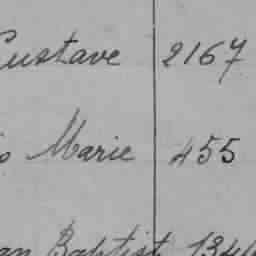 Gustave 2167
Marie 455
Baptist